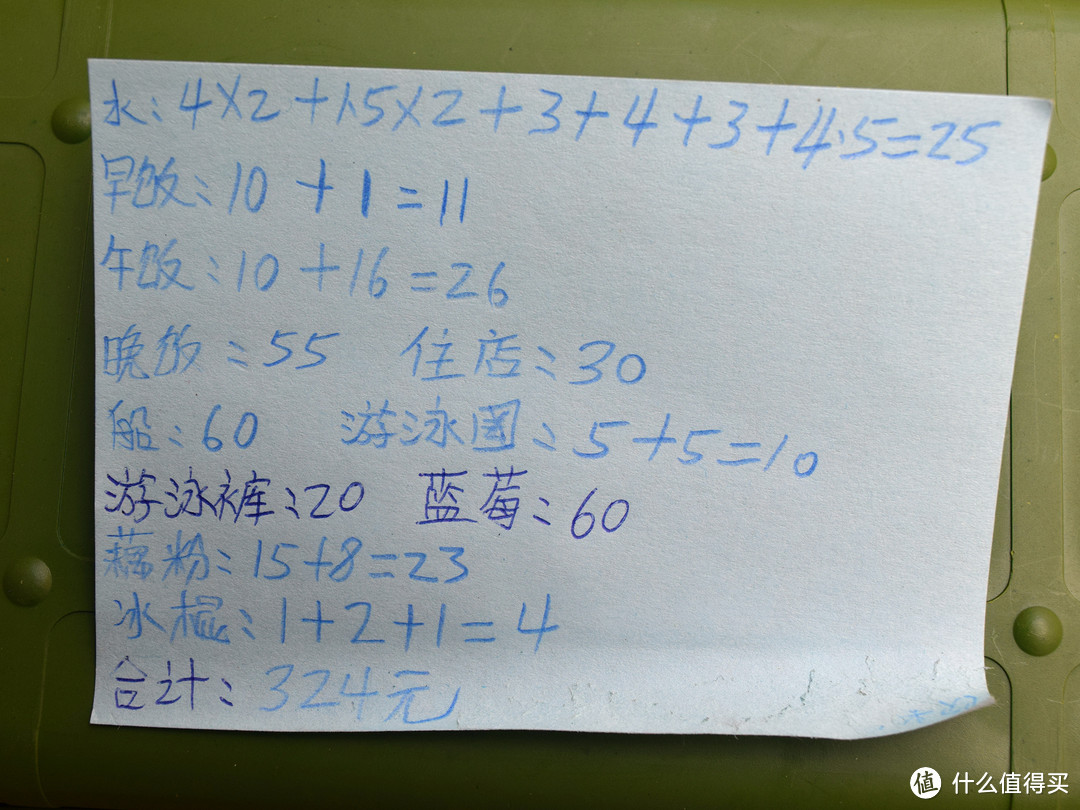 水：4×2+1.5×2+3+4+3+4.5=25
早饭：10+1=11
午饭：10+16=26
晚饭：55 住店：30
船：60 游泳圈：5+5=10
游泳裤：20 蓝莓：60
藕粉：15+8=23
冰棍：1+2+1=4
合计：324元
值 什么值得买